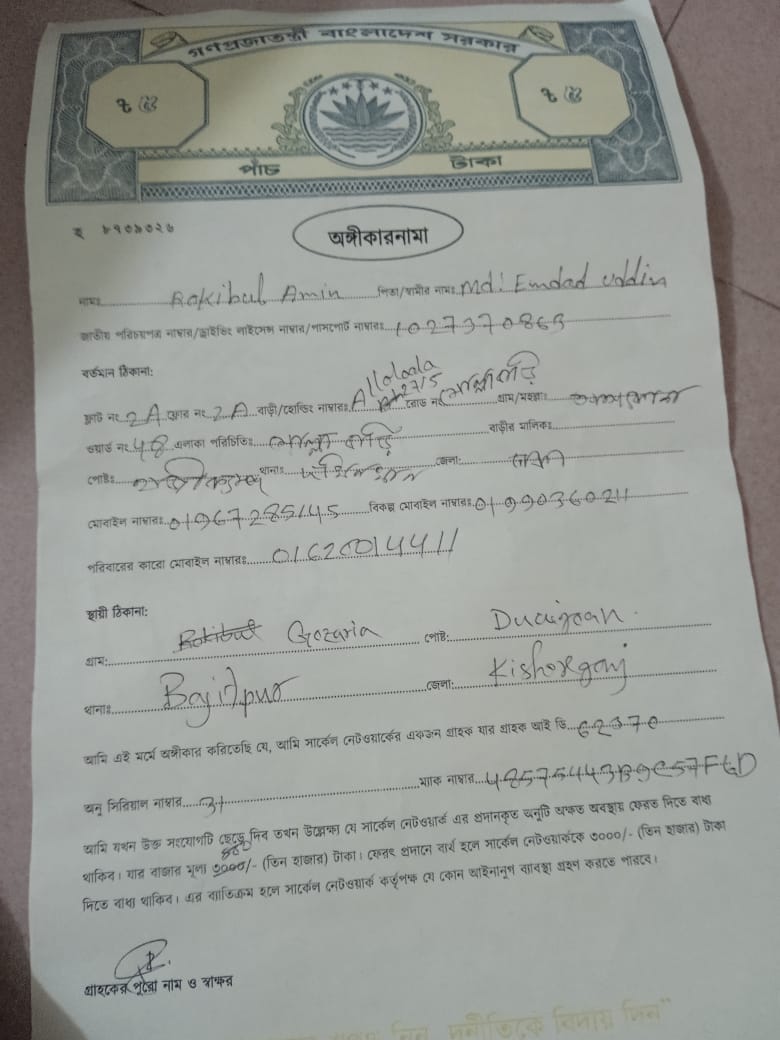 গণপ্রজাতন্ত্রী বাংলাদেশ সরকার
৳ ৫ ৳ ৫
পাঁচ টাকা
ই ৮৭০৯০২৬
অঙ্গীকারনামা
নামঃ Rakibul Amin পিতা/স্বামীর নামঃ Md: Emdad Uddin
জাতীয় পরিচয়পত্র নাম্বার/ড্রাইভিং লাইসেন্স নাম্বার/পাসপোর্ট নাম্বারঃ 1027370863
বর্তমান ঠিকানা:
ফ্লাট নং 2A ফ্লোর নং 2A বাড়ী/হোল্ডিং নাম্বারঃ রোড নং মোল্লাবাড়ি গ্রাম/মহল্লাঃ
ওয়ার্ড নং 48 এলাকা পরিচিতিঃ মোল্লা বাড়ি বাড়ীর মালিকঃ
পোষ্টঃ থানাঃ দক্ষিনখান জেলা: ঢাকা
মোবাইল নাম্বারঃ 01967285145 বিকল্প মোবাইল নাম্বারঃ 01990360211
পরিবারের কারো মোবাইল নাম্বারঃ 01620014411
স্থায়ী ঠিকানা:
গ্রাম: Gozaria পোষ্ট:
থানাঃ Bajitpur জেলা: Kishoreganj
আমি এই মর্মে অঙ্গীকার করিতেছি যে, আমি সার্কেল নেটওয়ার্কের একজন গ্রাহক যার গ্রাহক আই ডি 62370
অনু সিরিয়াল নাম্বার 31 ম্যাক নাম্বার 48575443B9C57F6D
আমি যখন উক্ত সংযোগটি ছেড়ে দিব তখন উল্লেক্ষ্য যে সার্কেল নেটওয়ার্ক এর প্রদানকৃত অনুটি অক্ষত অবস্থায় ফেরত দিতে বাধ্য
থাকিব। যার বাজার মূল্য ৩০০০/- (তিন হাজার) টাকা। ফেরৎ প্রদানে ব্যর্থ হলে সার্কেল নেটওয়ার্ককে ৩০০০/- (তিন হাজার) টাকা
দিতে বাধ্য থাকিব। এর ব্যতিক্রম হলে সার্কেল নেটওয়ার্ক কর্তৃপক্ষ যে কোন আইনানুগ ব্যাবস্থা গ্রহণ করতে পারবে।
গ্রাহকের পুরো নাম ও স্বাক্ষর
দিন, দুর্নীতিকে বিদায় দিন"